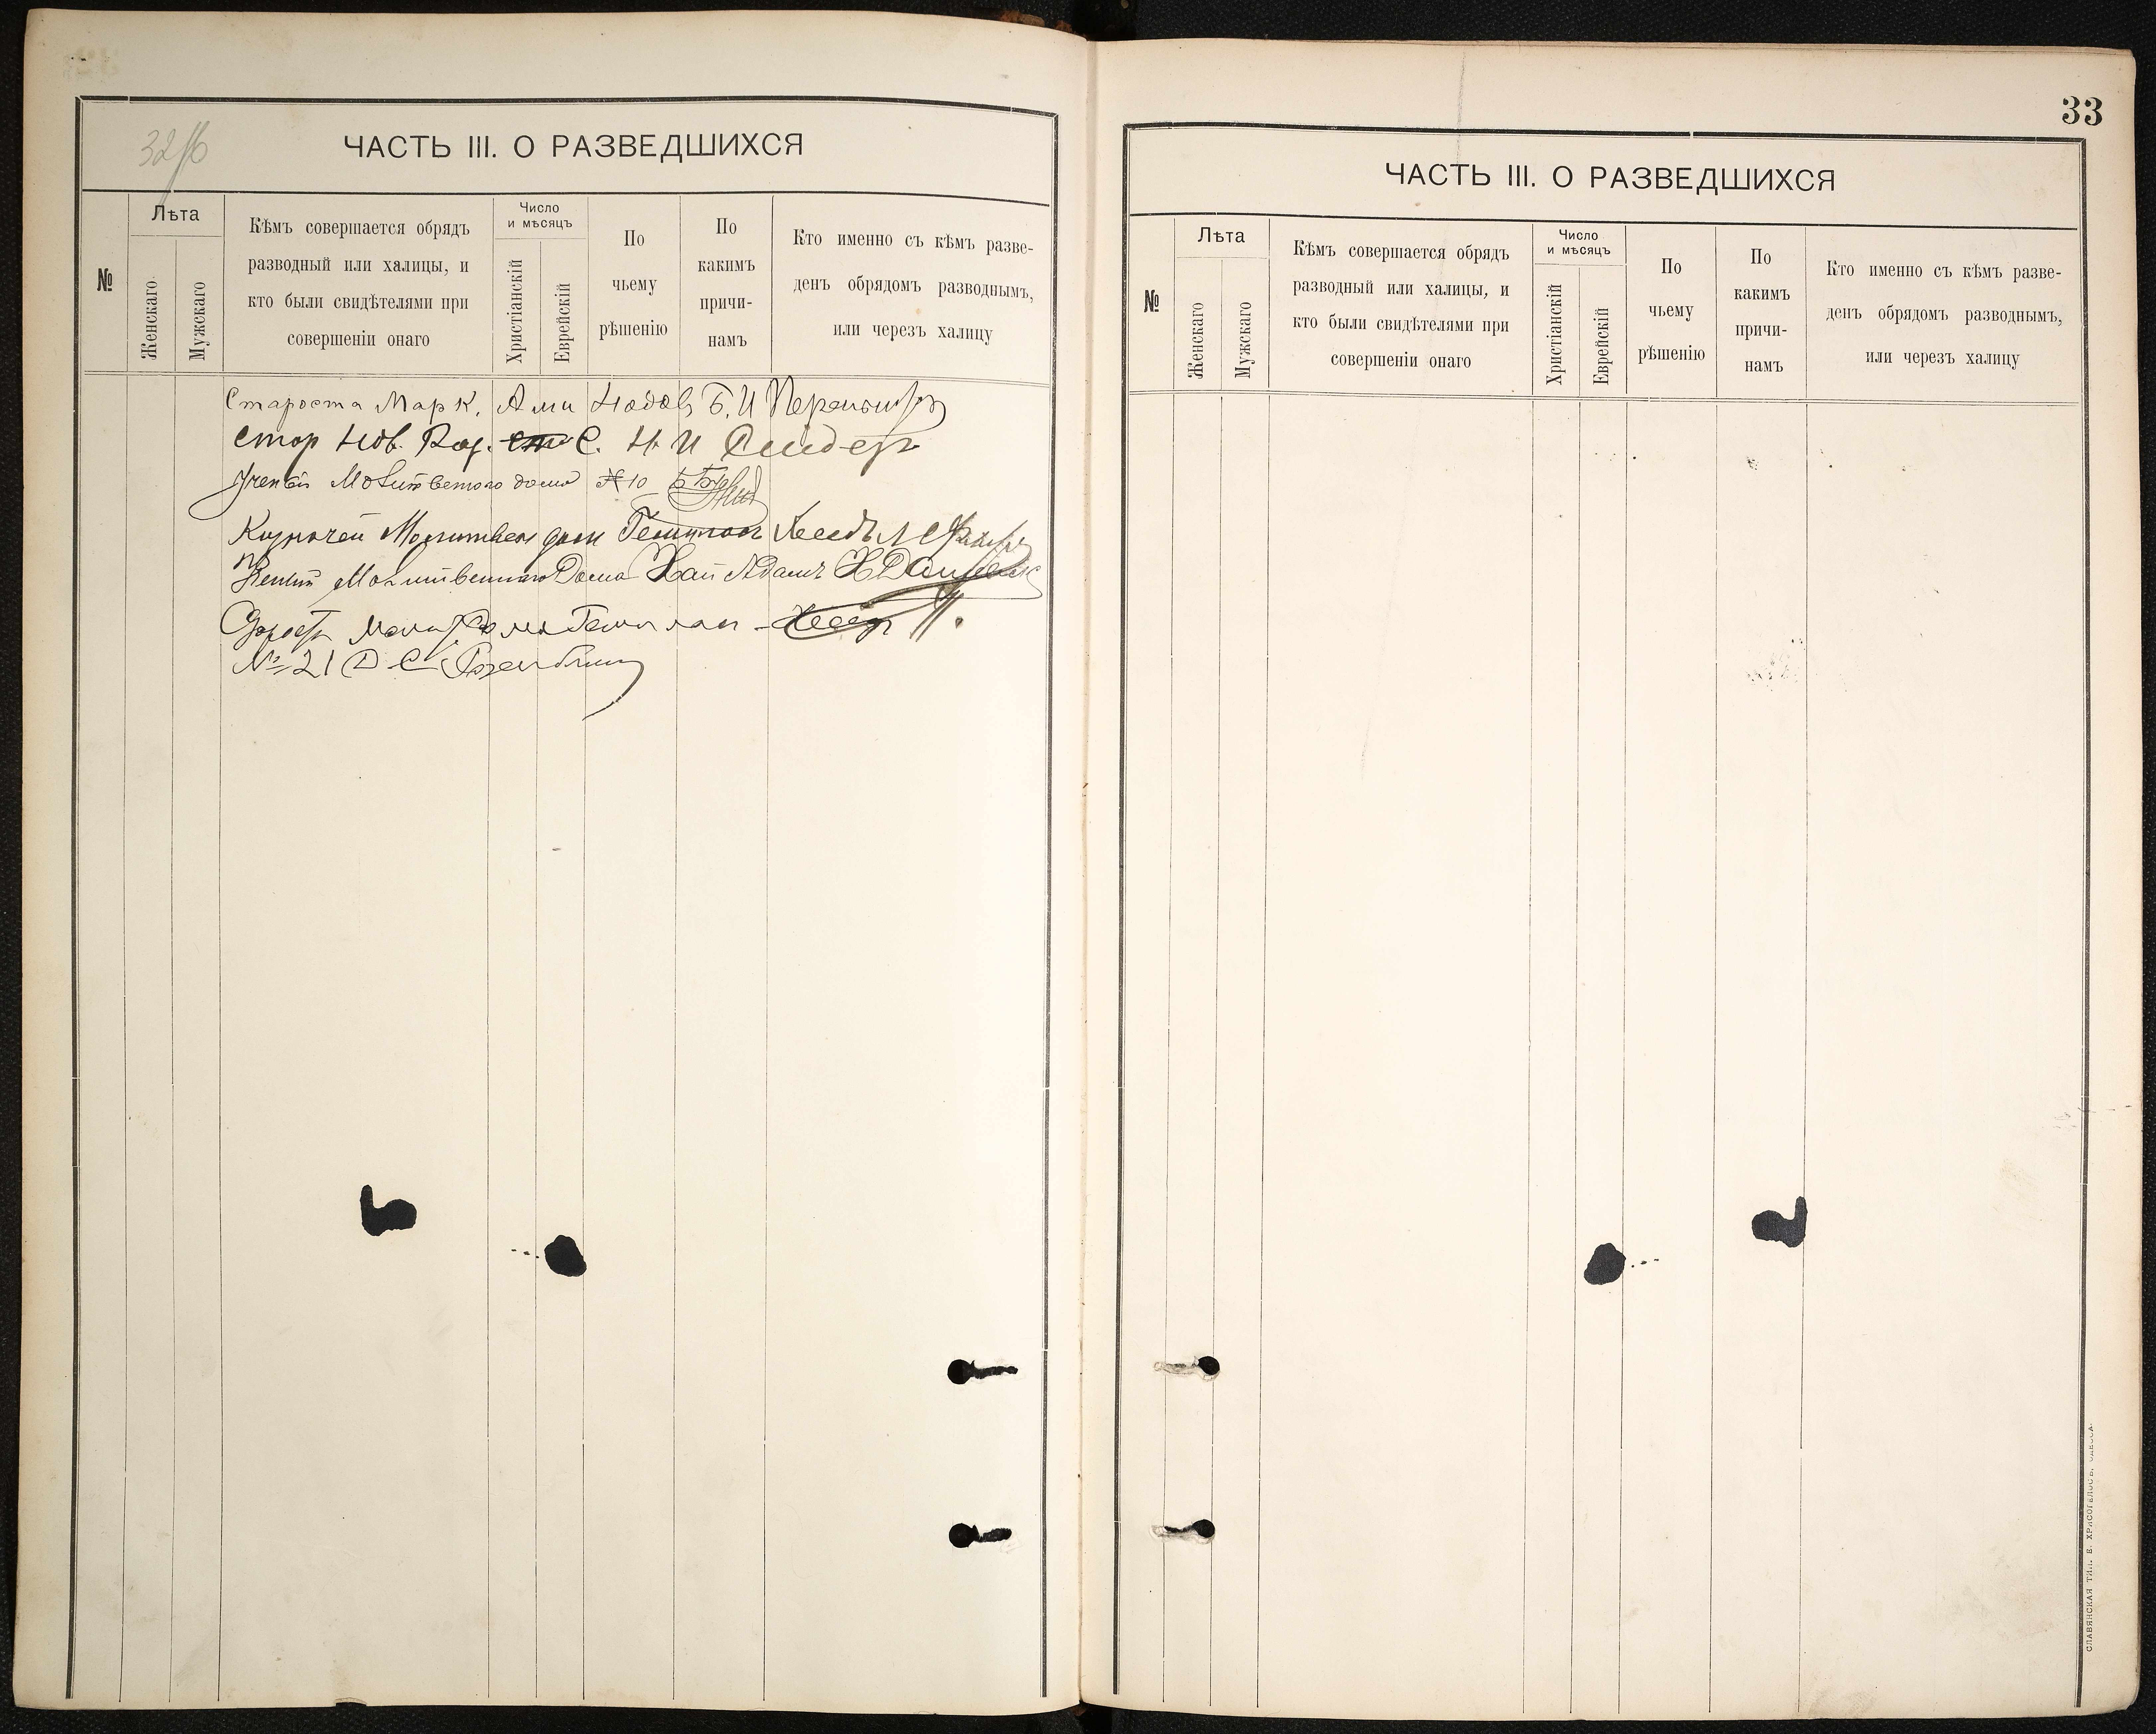 32 об
ЧАСТЬ III. О РАЗВЕДШИХСЯ
№
Лѣта
Женскаго
Мужскаго
Кѣмъ совершается обрядъ
разводный или халицы, и
кто были свидѣтелями при
совершеніи онаго
Число
и мѣсяцъ
Христіанскій
Еврейскій
По
чьему
рѣшенію
По
какимъ
причи-
намъ
Кто именно съ кѣмъ разве-
денъ обрядомъ разводнымъ,
или черезъ халицу
Староста Марк. Ами Нодовъ Б. И
Стар Нов. С. Н И
Ученый Молитвеного дома № 10
Казначей дом Хесед
Ученый Молитвенного Дома Хай Адамъ
№ 21 Д С
33
ЧАСТЬ III. О РАЗВЕДШИХСЯ
№
Лѣта
Женскаго
Мужскаго
Кѣмъ совершается обрядъ
разводный или халицы, и
кто были свидѣтелями при
совершеніи онаго
Число
и мѣсяцъ
Христіанскій
Еврейскій
По
чьему
рѣшенію
По
какимъ
причи-
намъ
Кто именно съ кѣмъ разве-
денъ обрядомъ разводнымъ,
или черезъ халицу
СЛАВЯНСКАЯ ТИП. Е. ХРИСОГЕЛОСЪ, ОДЕССА.